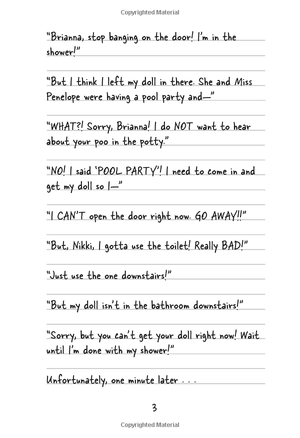 Copyrighted Material
"Brianna, stop banging on the door! I'm in the
shower!"
"But I think I left my doll in there. She and Miss
Penelope were having a pool party and—"
"WHAT?! Sorry, Brianna! I do NOT want to hear
about your poo in the potty."
"NO! I said 'POOL PARTY'! I need to come in and
get my doll so I—"
"I CAN'T open the door right now. GO AWAY!!"
"But, Nikki, I gotta use the toilet! Really BAD!"
"Just use the one downstairs!"
"But my doll isn't in the bathroom downstairs!"
"Sorry, but you can't get your doll right now! Wait
until I'm done with my shower!"
Unfortunately, one minute later . . .
3
Copyrighted Material